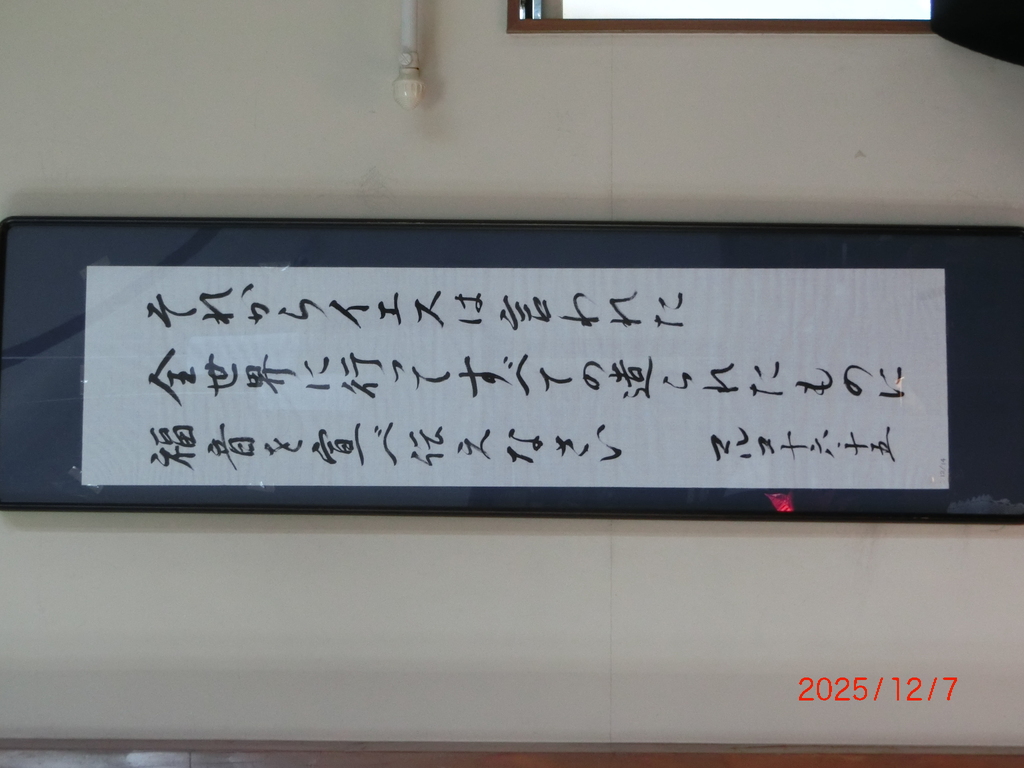 それからイエスは言われた
全世界に行ってすべての造られたものに
福音を宣べ伝えなさい
マルコ十六・十五
2025/12/7